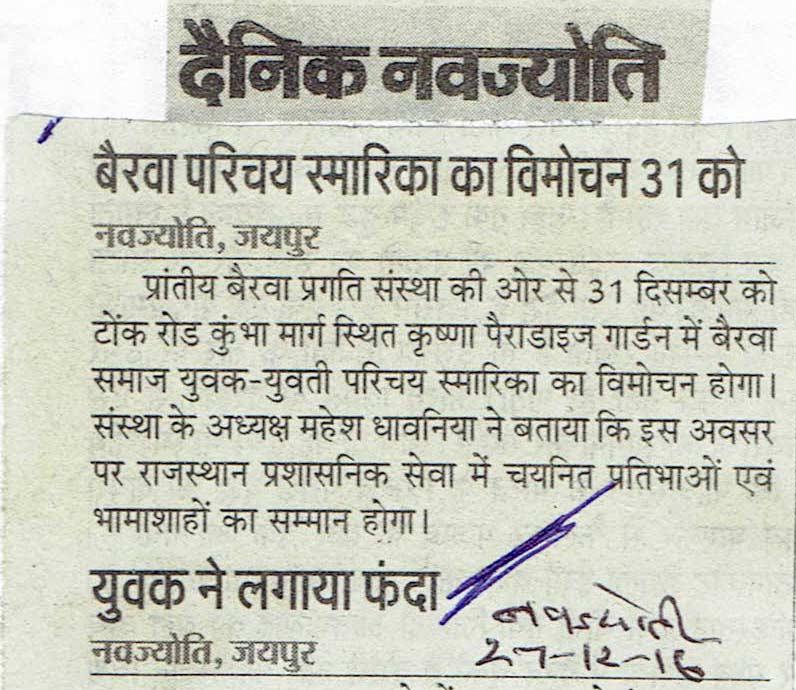 दैनिक नवज्योति
बैरवा परिचय स्मारिका का विमोचन 31 को
नवज्योति, जयपुर
प्रांतीय बैरवा प्रगति संस्था की ओर से 31 दिसम्बर को
टोंक रोड कुंभा मार्ग स्थित कृष्णा पैराडाइज गार्डन में बैरवा
समाज युवक-युवती परिचय स्मारिका का विमोचन होगा।
संस्था के अध्यक्ष महेश धावनिया ने बताया कि इस अवसर
पर राजस्थान प्रशासनिक सेवा में चयनित प्रतिभाओं एवं
भामाशाहों का सम्मान होगा।
युवक ने लगाया फंदा
नवज्योति
नवज्योति, जयपुर
27-12-16